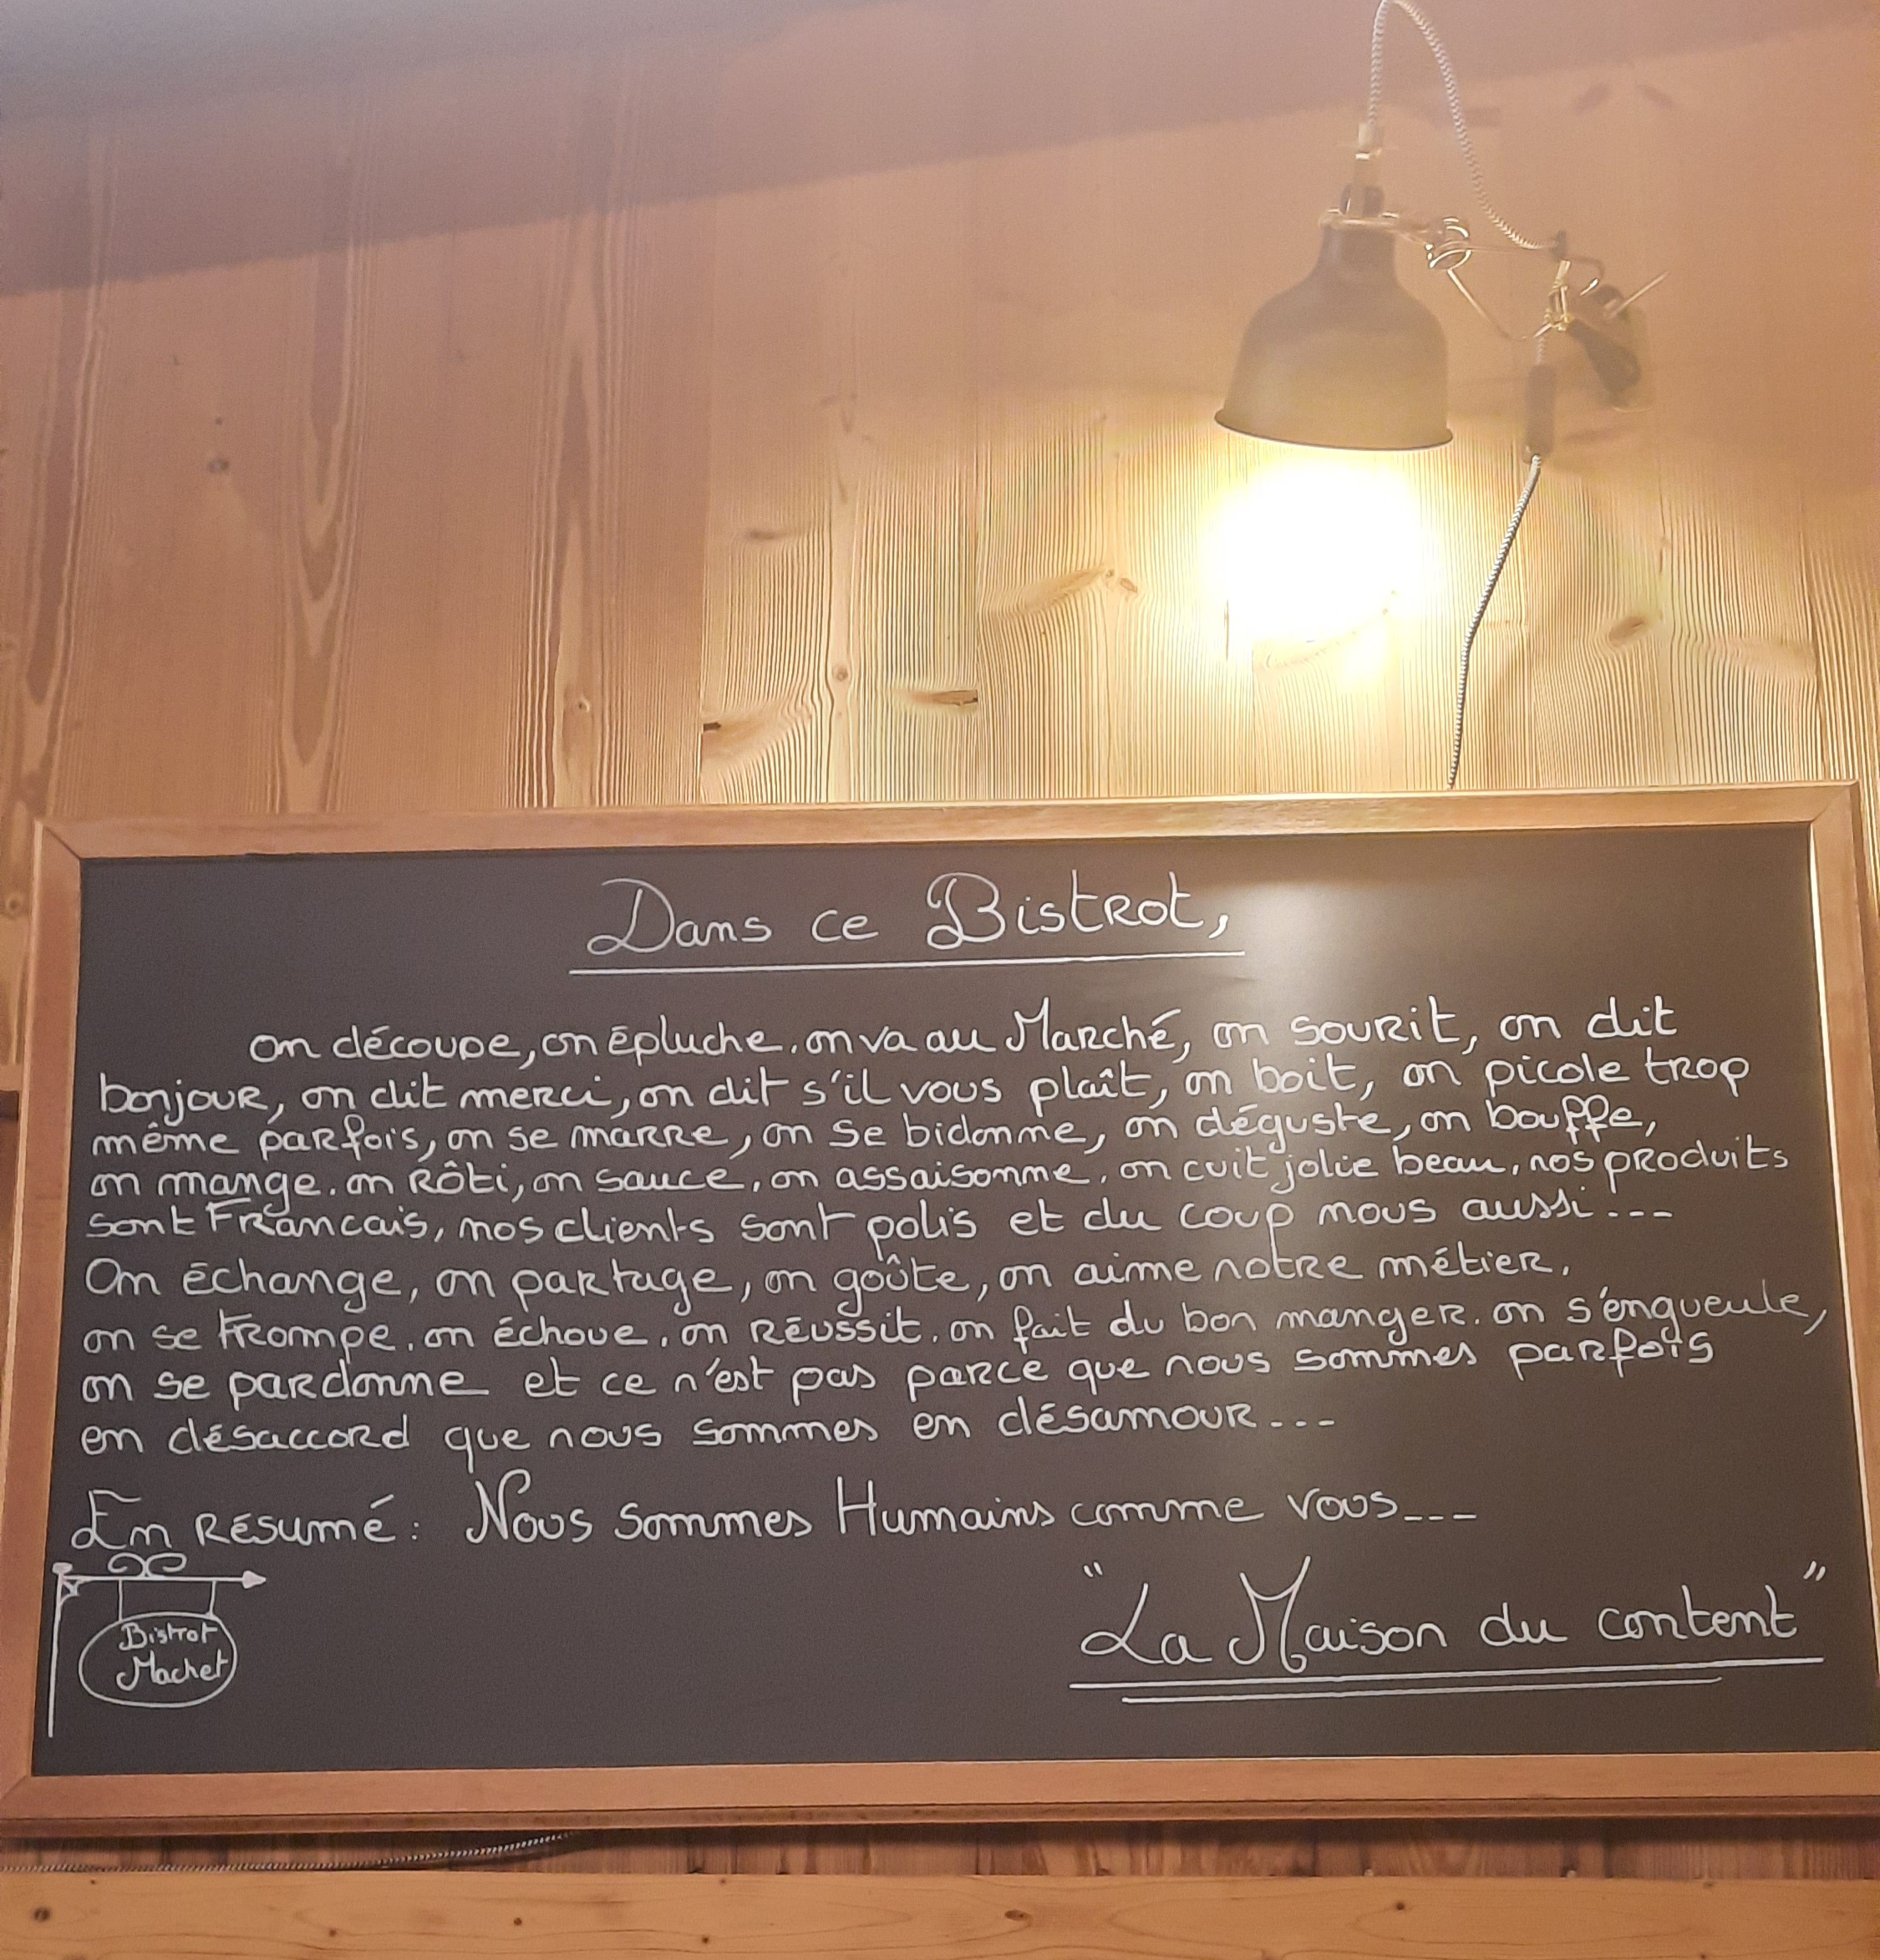 Dans ce Bistrot,
on découpe, on épluche. on va au Marché, on sourit, on dit
bonjour, on dit merci, on dit s'il vous plaît, on boit, on picole trop
même parfois, on se marre, on se bidonne, on déguste, on bouffe,
on mange. on rôti, on sauce, on assaisonne. on cuit jolie beau. nos produits
sont Francais, nos clients sont polis et du coup nous aussi...
On échange, on partage, on goûte, on aime notre métier.
on se trompe. on échoue. on réussit. on fait du bon manger. on s'engueule,
on se pardonne et ce n'est pas parce que nous sommes parfois
en désaccord que nous sommes en désamour...
En résumé: Nous sommes Humains comme vous...
"La Maison du content"
Bistrot
Machet